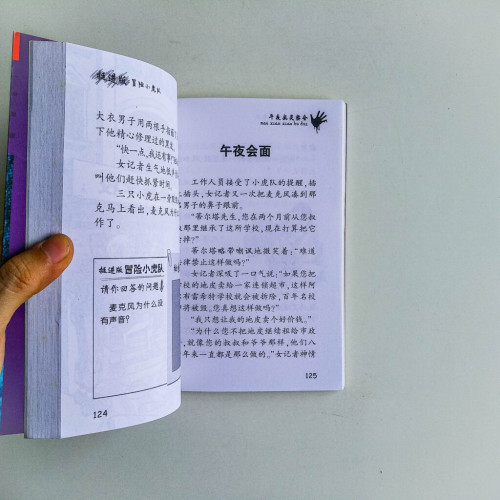 超进版 冒险小虎队
大衣男子用两根手指
下他精心修理过的
“快一点,我还有事
女记者生气地低声
叫他们赶快抓紧时间。
三只小虎在一旁
克马上看出,麦克风为什
作了。
超进版 冒险小虎队
请你回答的问题
麦克风为什么没
有声音?
124
午夜幽灵聚会
午夜会面
工作人员接受了小虎队的提醒,插
插头,女记者又一次把麦克风凑到那
男子的鼻子跟前。
“蒂尔塔先生,您在两个月前从您叔
那里继承了这所学校,现在打算把它
掉?”
蒂尔塔略带嘲讽地微笑着:“难道
律禁止这样做吗?”
女记者深吸了一口气说:“如果您把
校的地皮卖给一家连锁超市,这样阿
布雷希特学校就会被拆除,百年名校
将被毁,您真想这样做吗?”
“我只想让我的地皮卖个好价钱。”
“为什么您不把地皮继续租给市政
,就像您的叔叔和爷爷那样,他们八
年来一直都是那么做的。”女记者神情
125